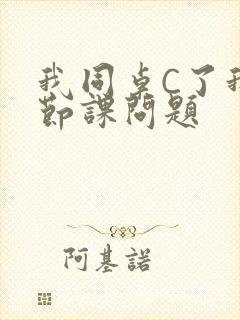 我同桌C了我
節課問題
阿基諾